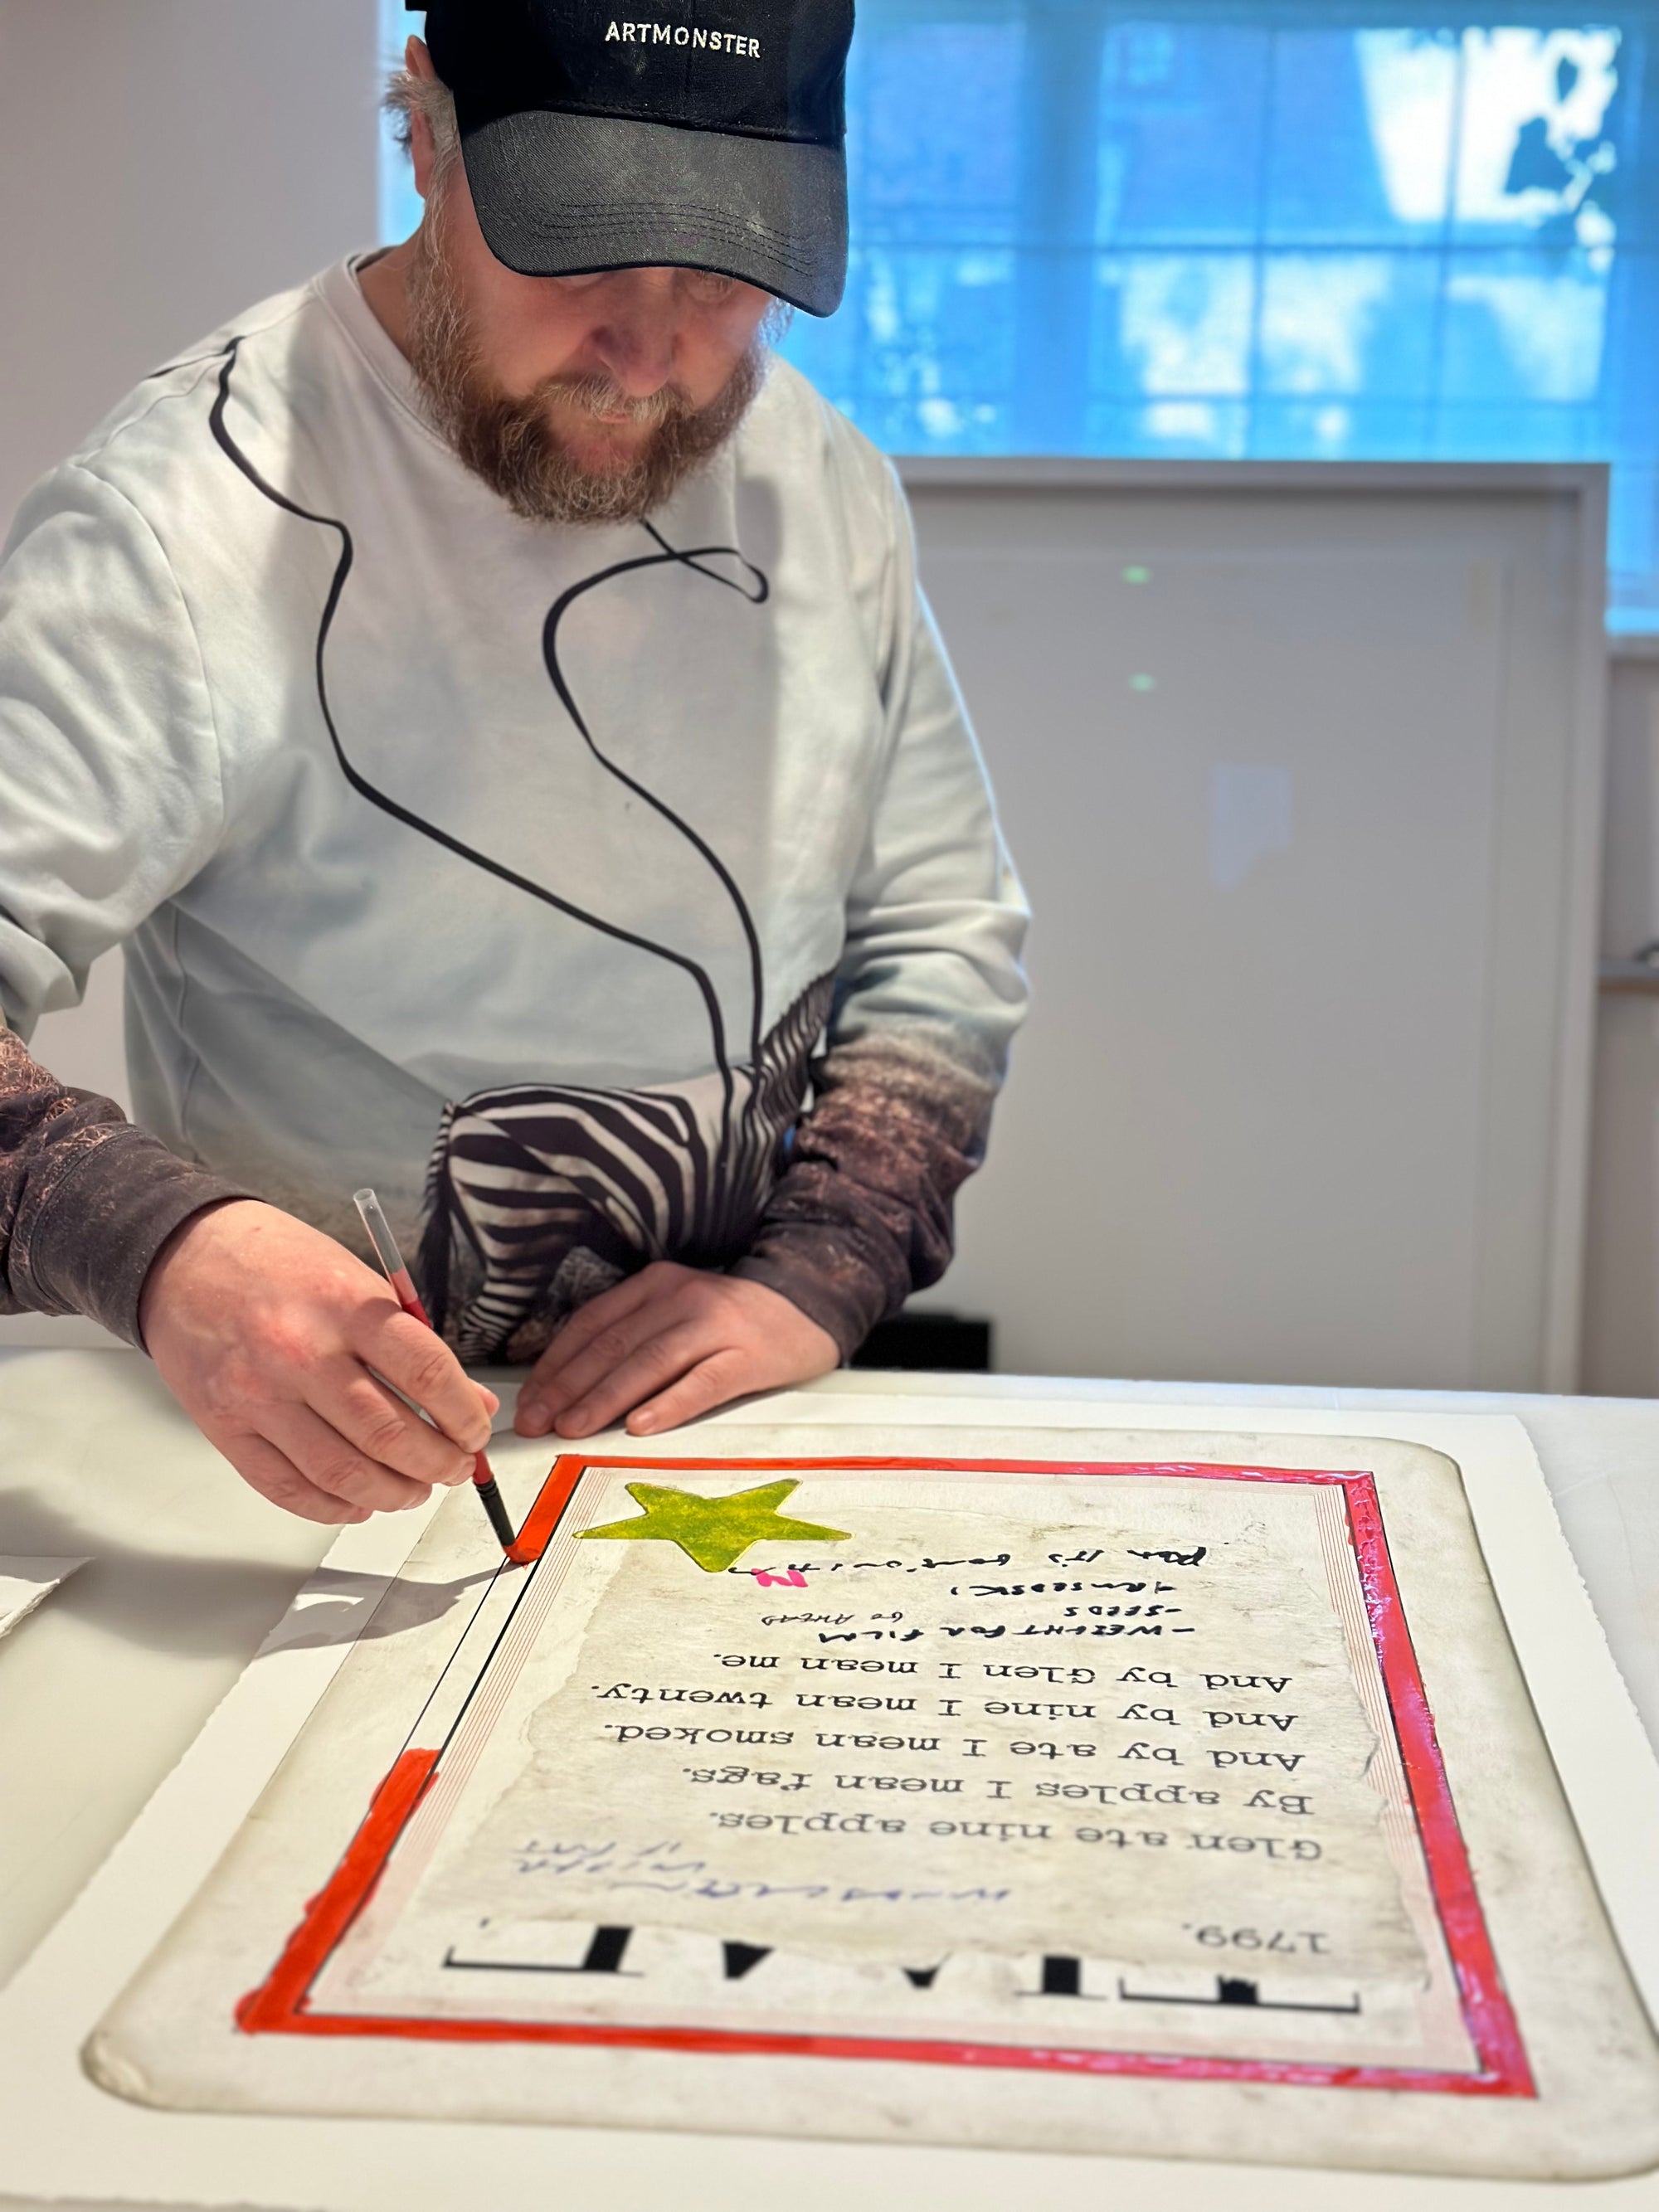 ARTMONSTER
1799.
Glen ate nine apples.
By apples I mean fags.
And by ate I mean smoked.
And by nine I mean twenty.
And by Glen I mean me.
- WEIGHT FOR FILM
GO AHEAD
- SEEDS